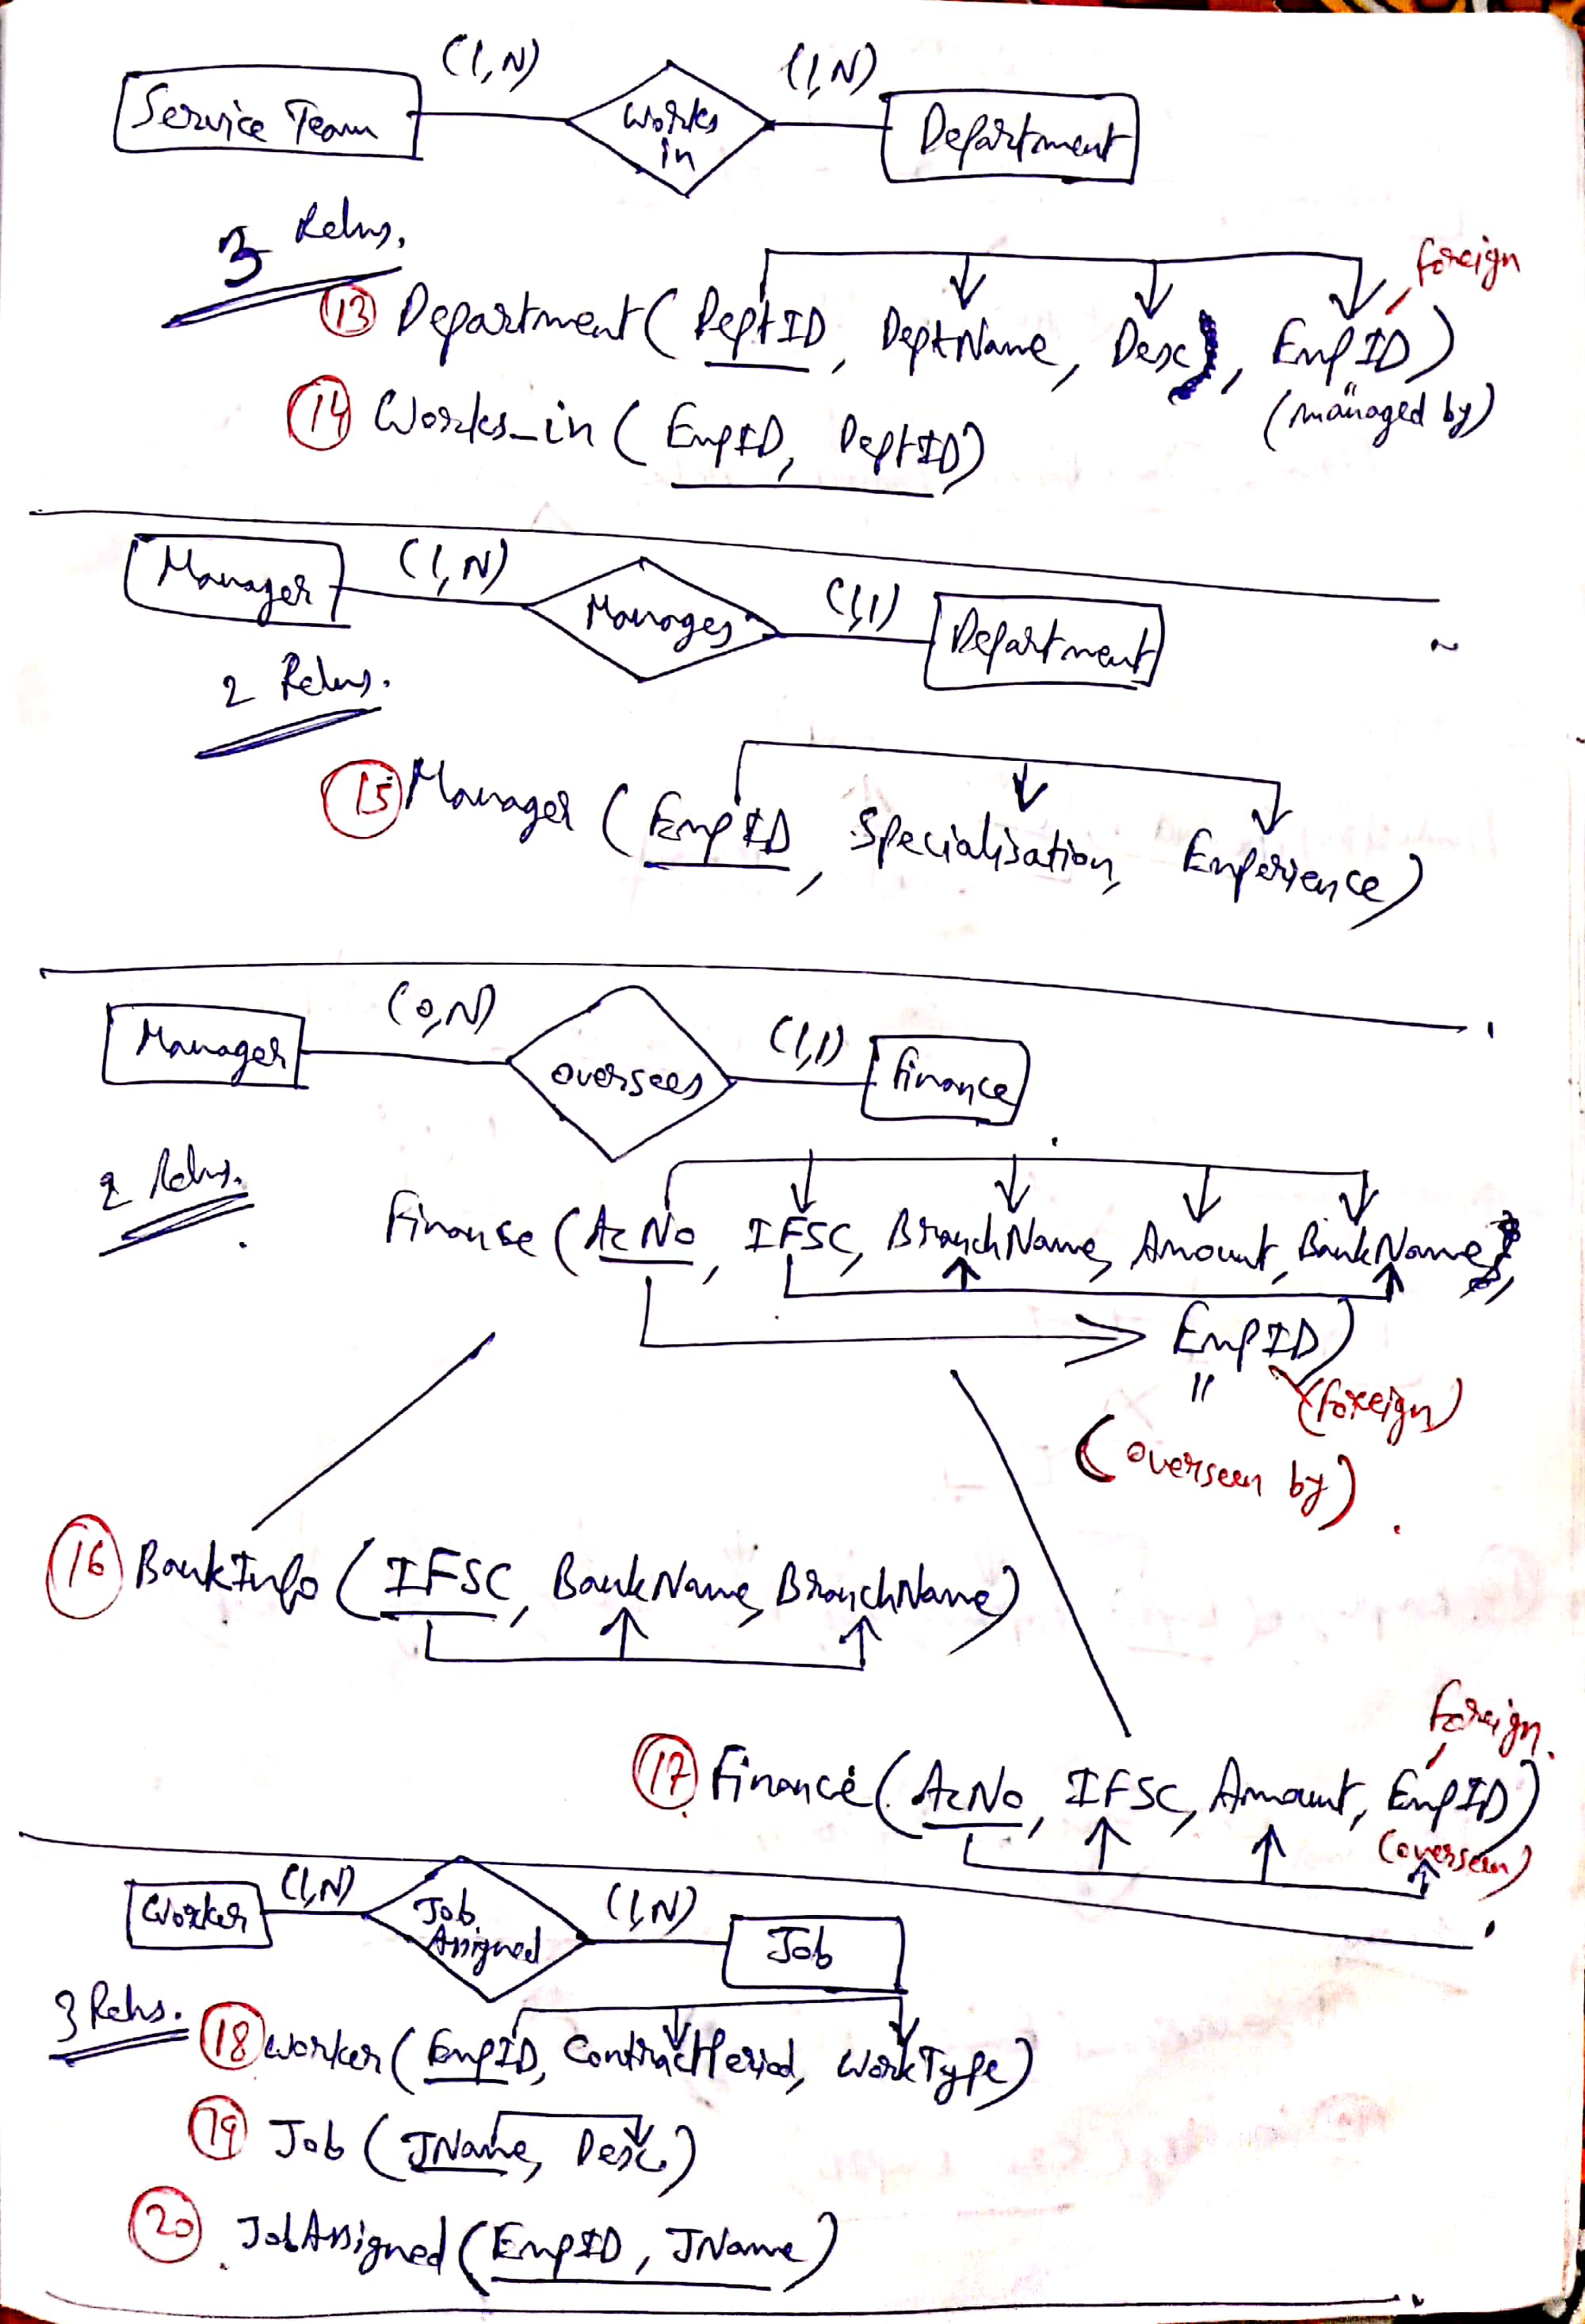 (1,N) (1,N)
Service Team Works in Department
3 Relns.
foreign
(13) Department ( DeptID, DeptName, Desc, EmpID)
(managed by)
(14) Works_in ( EmpID, DeptID)
Manager (1,N) Manages (1,1) Department
2 Relns.
(15) Manager ( EmpID, Specialisation, Experience)
Manager (0,N) oversees (1,1) Finance
2 Relns.
Finance (AcNo, IFSC, BranchName, Amount, BankName,
EmpID)
(foreign)
(overseen by)
(16) BankInfo ( IFSC, BankName, BranchName)
foreign
(17) Finance ( AcNo, IFSC, Amount, EmpID)
(overseen)
Worker (1,N) Job Assigned (1,N) Job
3 Relns.
(18) Worker ( EmpID, ContractPeriod, WorkType)
(19) Job ( JName, Desc)
(20) JobAssigned ( EmpID, JName)